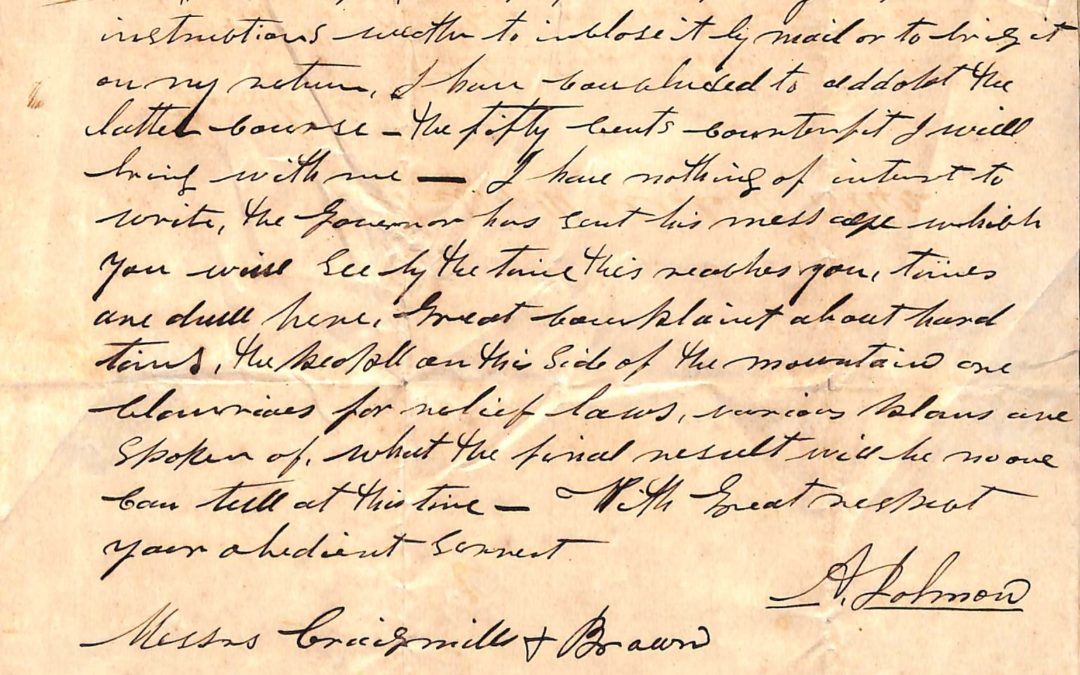 instructions wether to inclose it by mail or to bring it
on my return, I have concluded to addopt the
latter course – the fifty cents counterfit I will
bring with me — I have nothing of interest to
write, the Governor has sent his message which
you will see by the time this reaches you, times
are dull here, Great complaint about hard
times, the people on this side of the mountain are
for relief laws, various plans are
spoken of, what the final result will be no one
can tell at this time – With Great respect
your obedient servent
A. Johnson
Messrs Craigmills & Brown